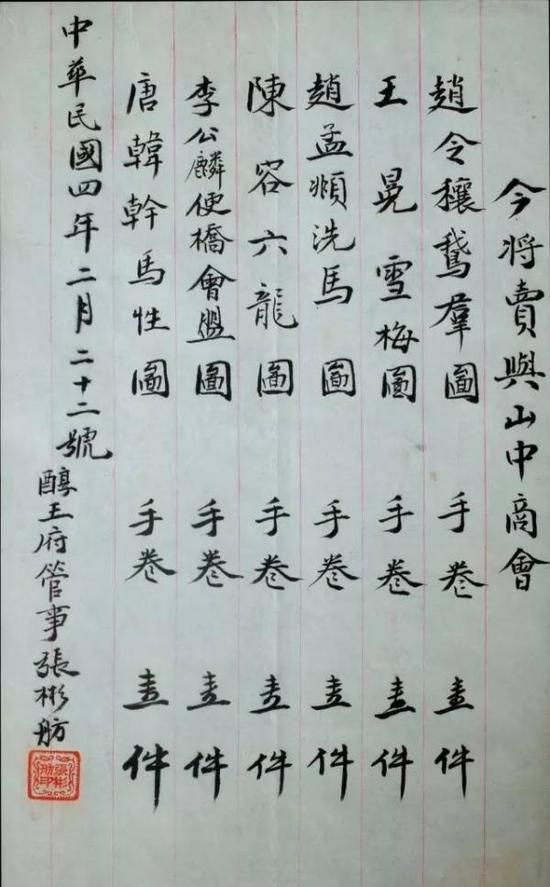 今將賣與山中商會
趙令穰鵝羣圖 手卷 壹件
王晃雪梅圖 手卷 壹件
趙孟頫洗馬圖 手卷 壹件
陳容六龍圖 手卷 壹件
李公麟便橋會盟圖 手卷 壹件
唐韓幹馬性圖 手卷 壹件
中華民國四年二月二十二號
醇王府管事張彬舫
張彬舫印